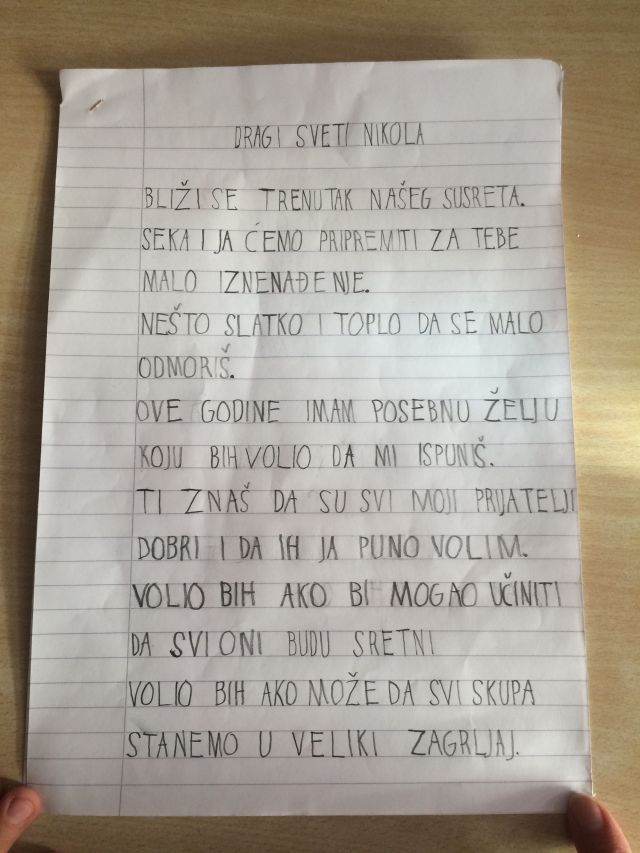 DRAGI SVETI NIKOLA
BLIŽI SE TRENUTAK NAŠEG SUSRETA.
SEKA I JA ĆEMO PRIPREMITI ZA TEBE
MALO IZNENAĐENJE.
NEŠTO SLATKO I TOPLO DA SE MALO
ODMORIŠ.
OVE GODINE IMAM POSEBNU ŽELJU
KOJU BIH VOLIO DA MI ISPUNIŠ.
TI ZNAŠ DA SU SVI MOJI PRIJATELJI
DOBRI I DA IH JA PUNO VOLIM.
VOLIO BIH AKO BI MOGAO UČINITI
DA SVI ONI BUDU SRETNI
VOLIO BIH AKO MOŽE DA SVI SKUPA
STANEMO U VELIKI ZAGRLJAJ.